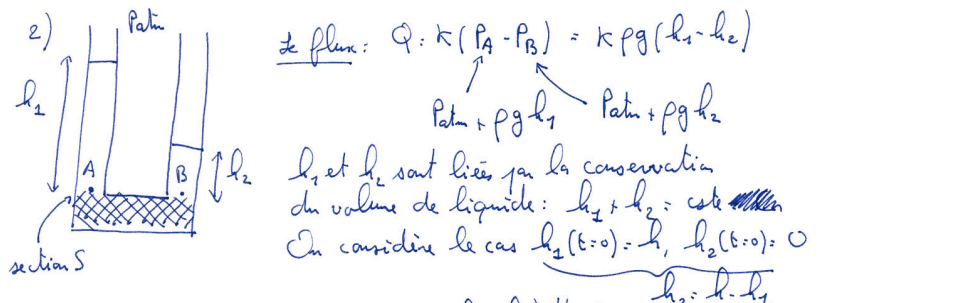 2) Patm
Le flux: Q: K(PA - PB) = Kρg(h1-h2)
h1
Patm + ρgh1 Patm + ρgh2
A B h2
h1 et h2 sont liées par la conservation
du volume de liquide: h1 + h2 = cste
On considère le cas h1(t=0)=h, h2(t=0)=0
section S
h2 = h-h1